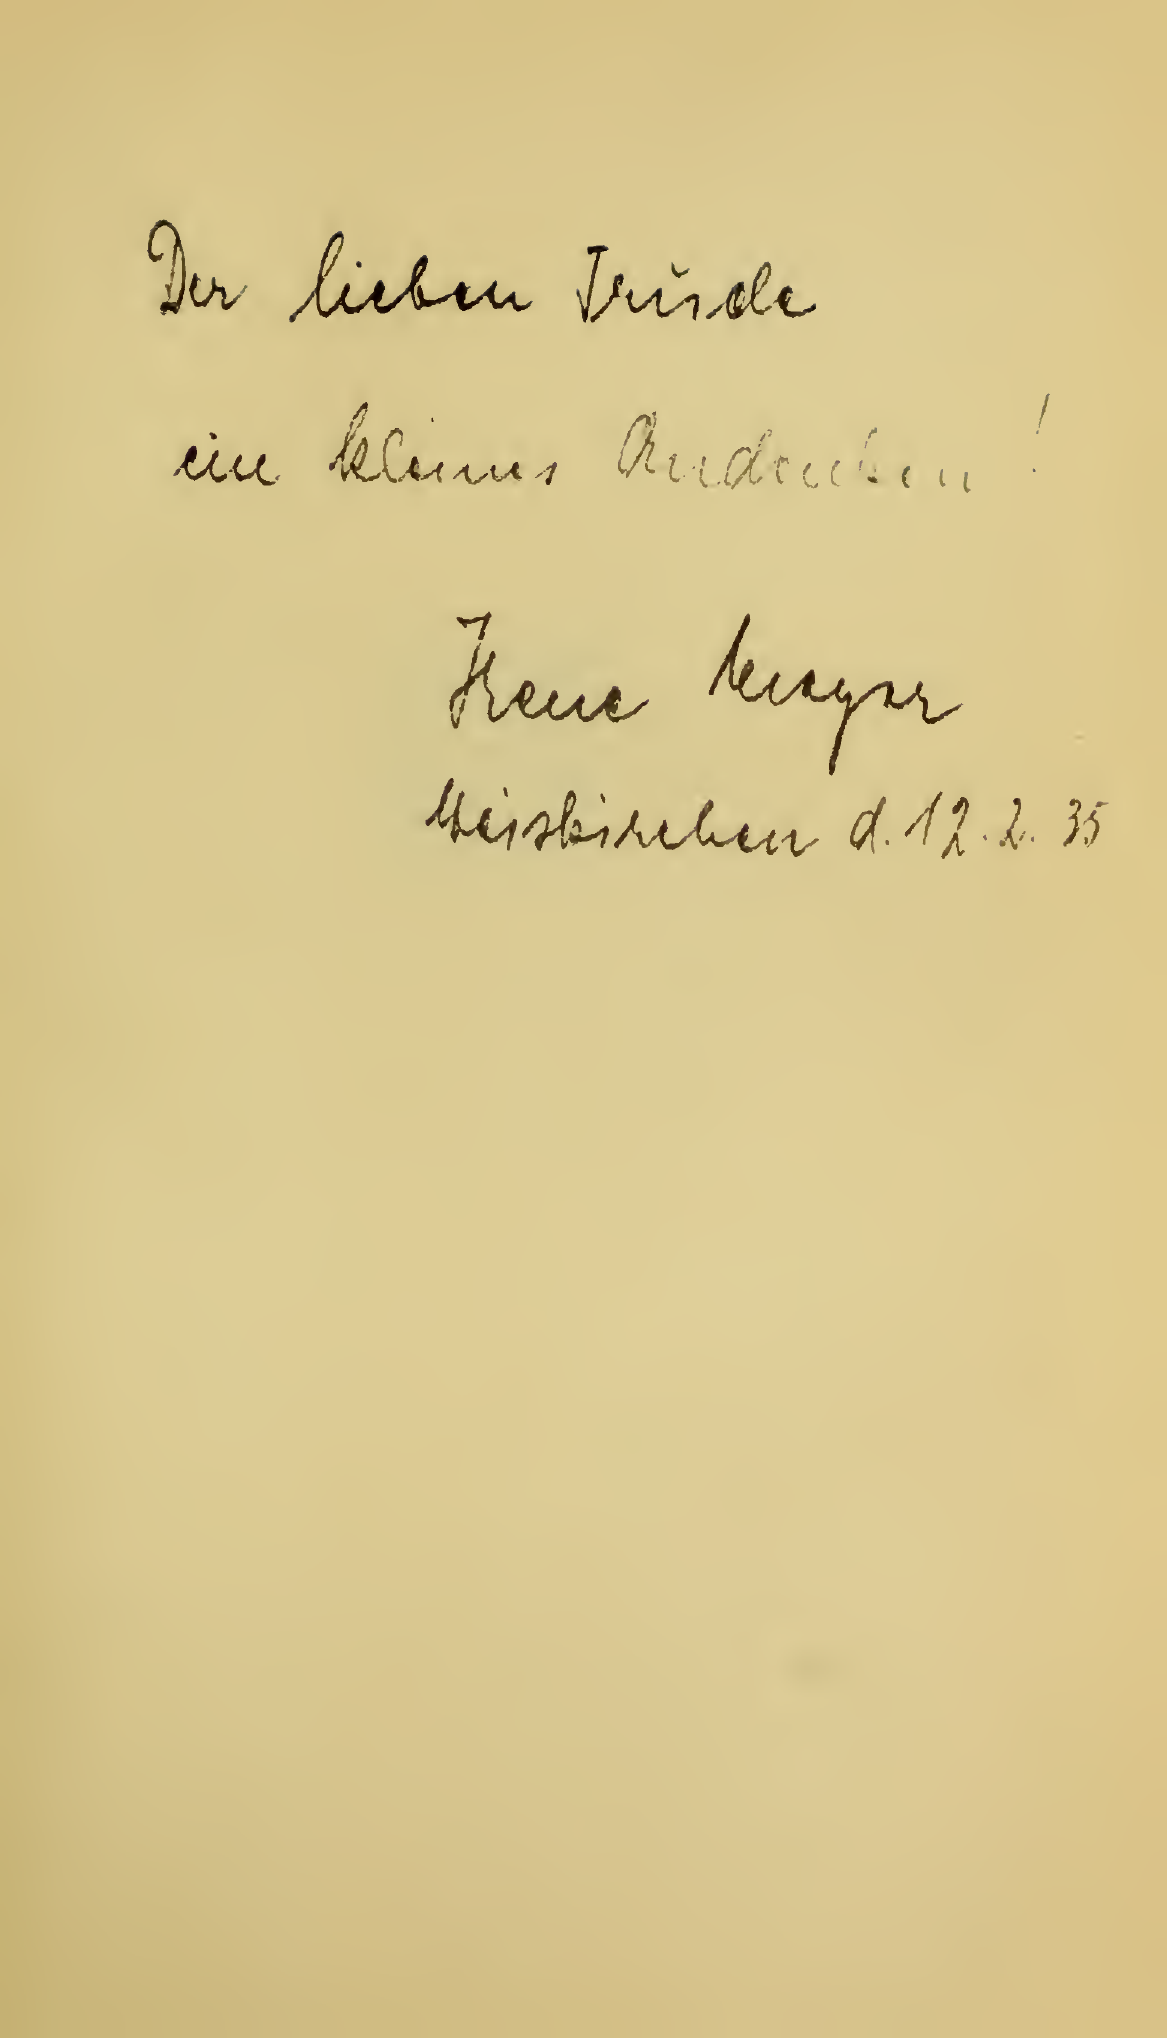 Der lieben Trude
ein kleines Andenken!
Irene Mayer
Weisskirchen d. 12.2.35